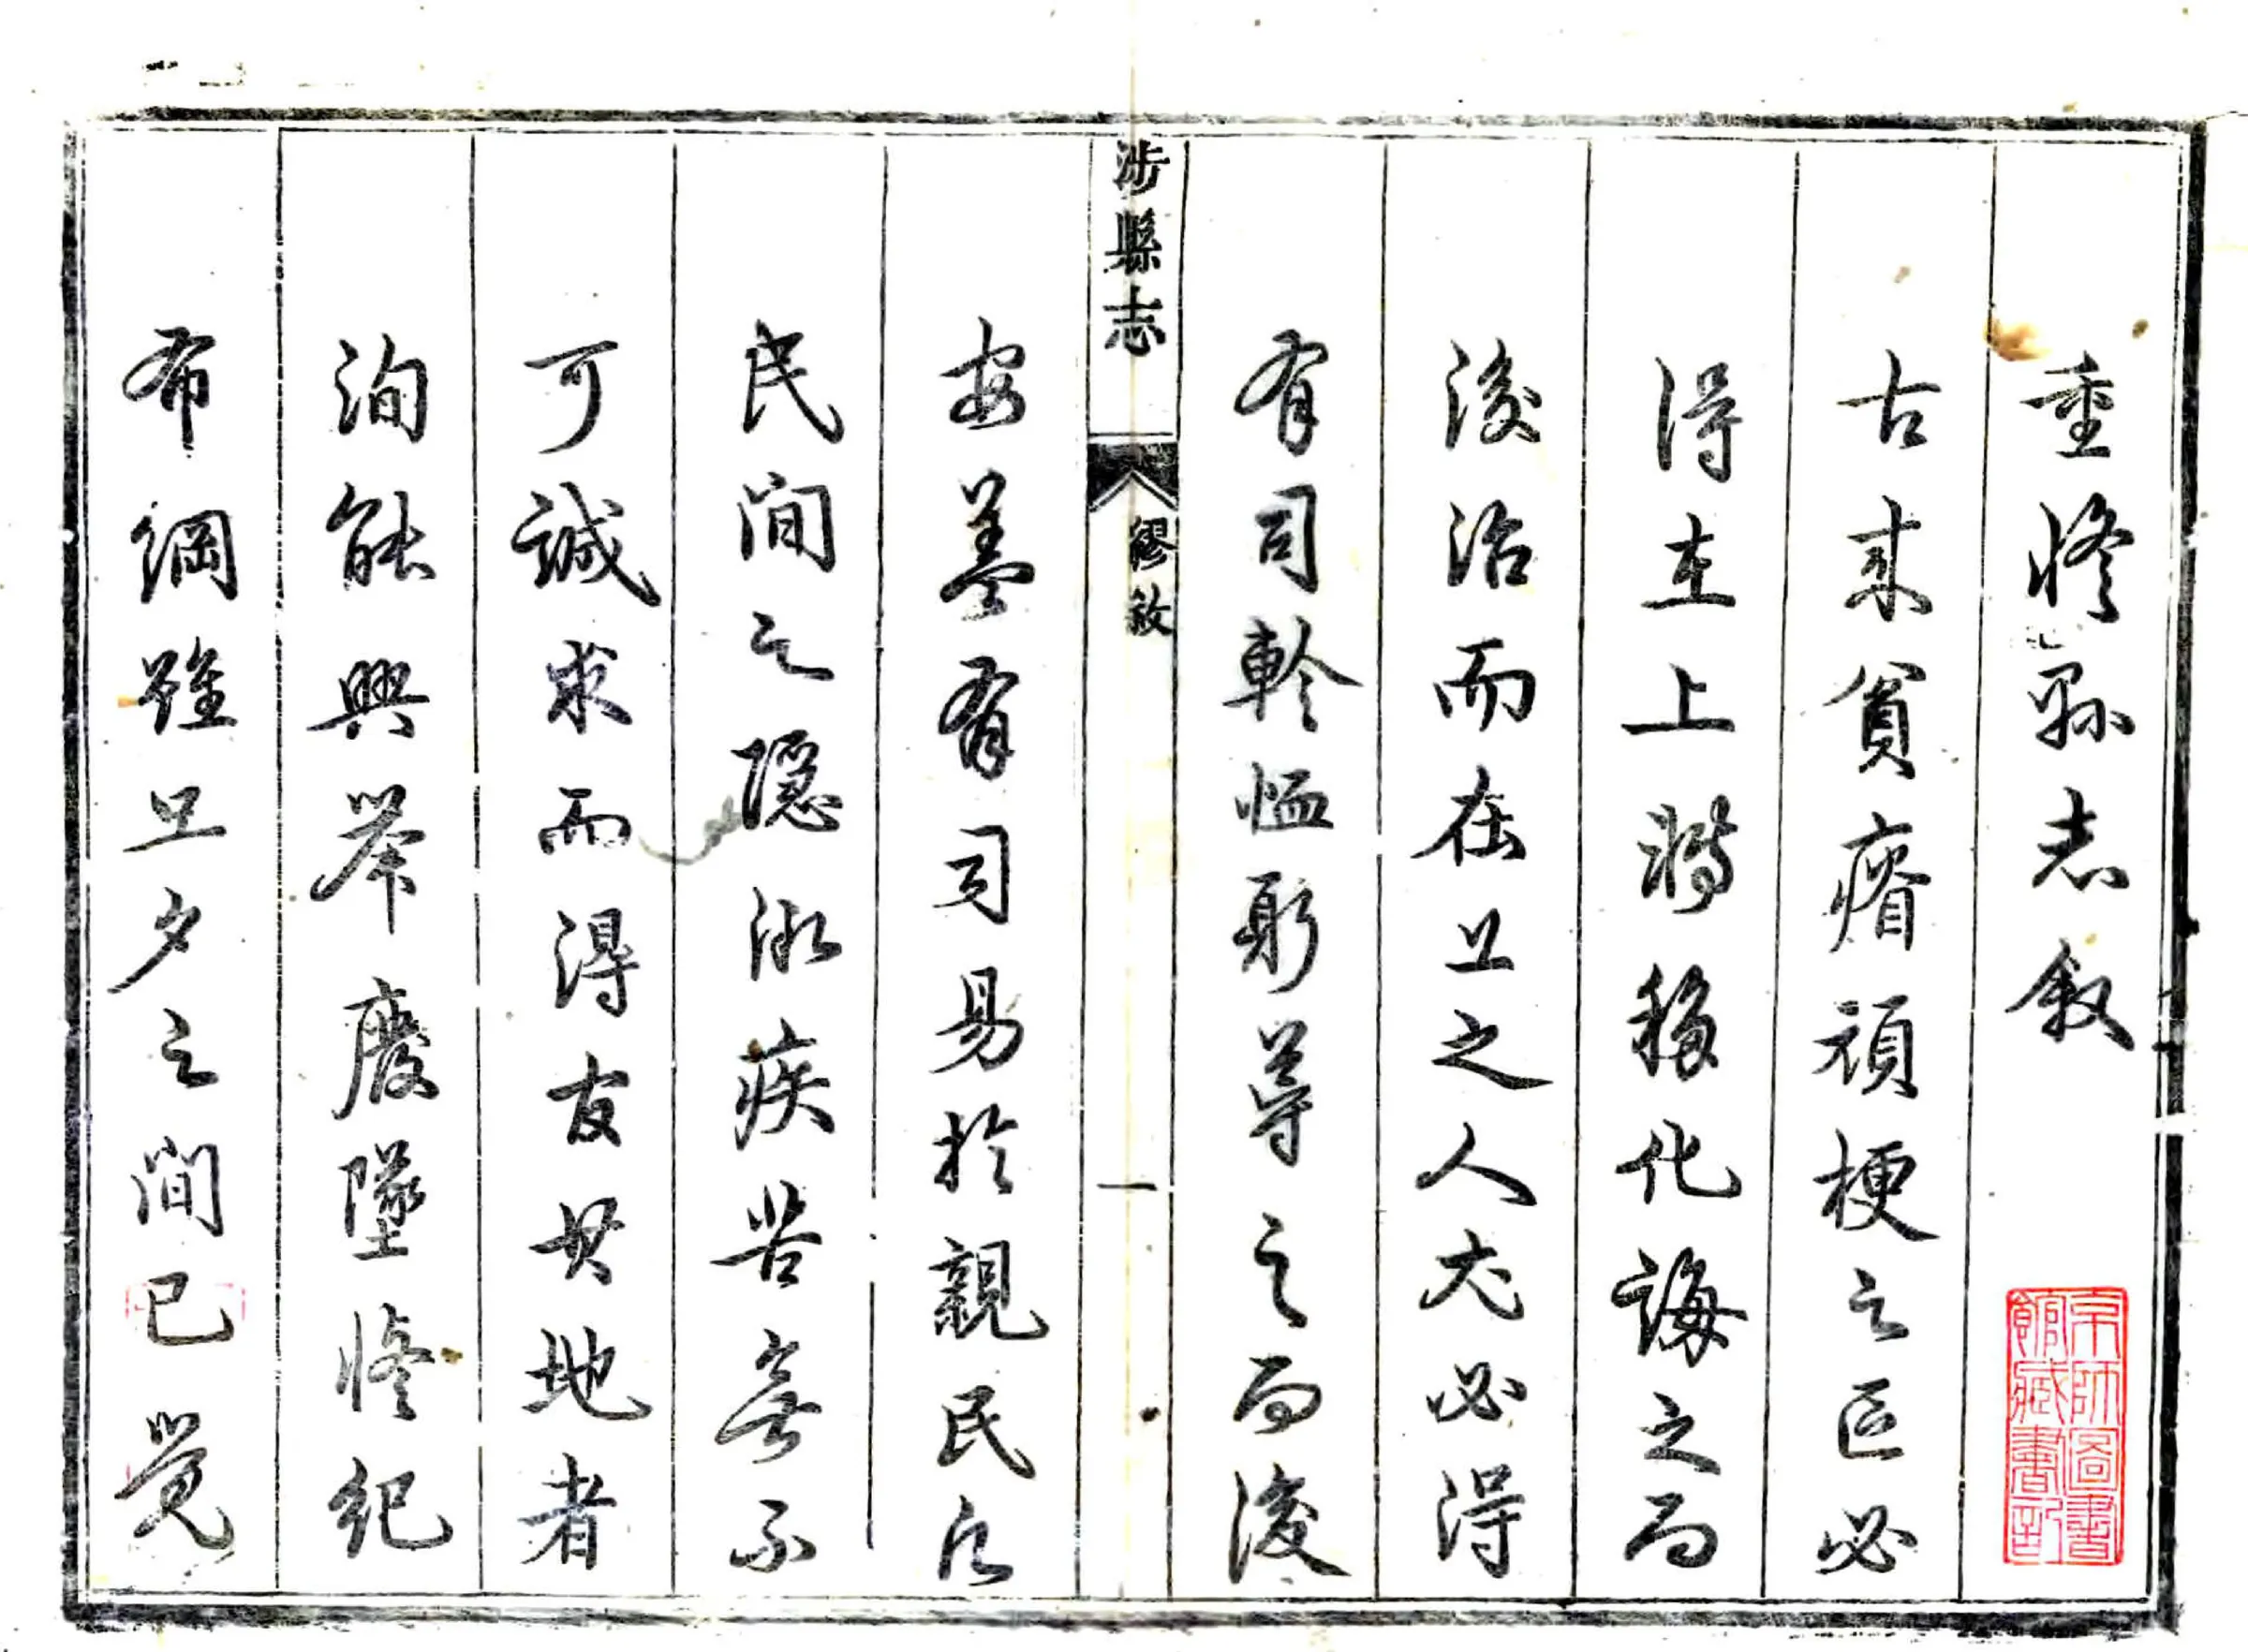 重修縣志敘
古来貧瘠頑梗之區必
得在上漸移化誨之而
後治而在上之人尤必得
有司軫恤躬導之而後
安蓋有司易於親民凡
涉縣志
繆敘
一
民間之隱微疾苦無不
可誠求而得友其地者
洵能興举廢墜修紀
布綱雖旦夕之間已覺
京師圖書
館藏書記